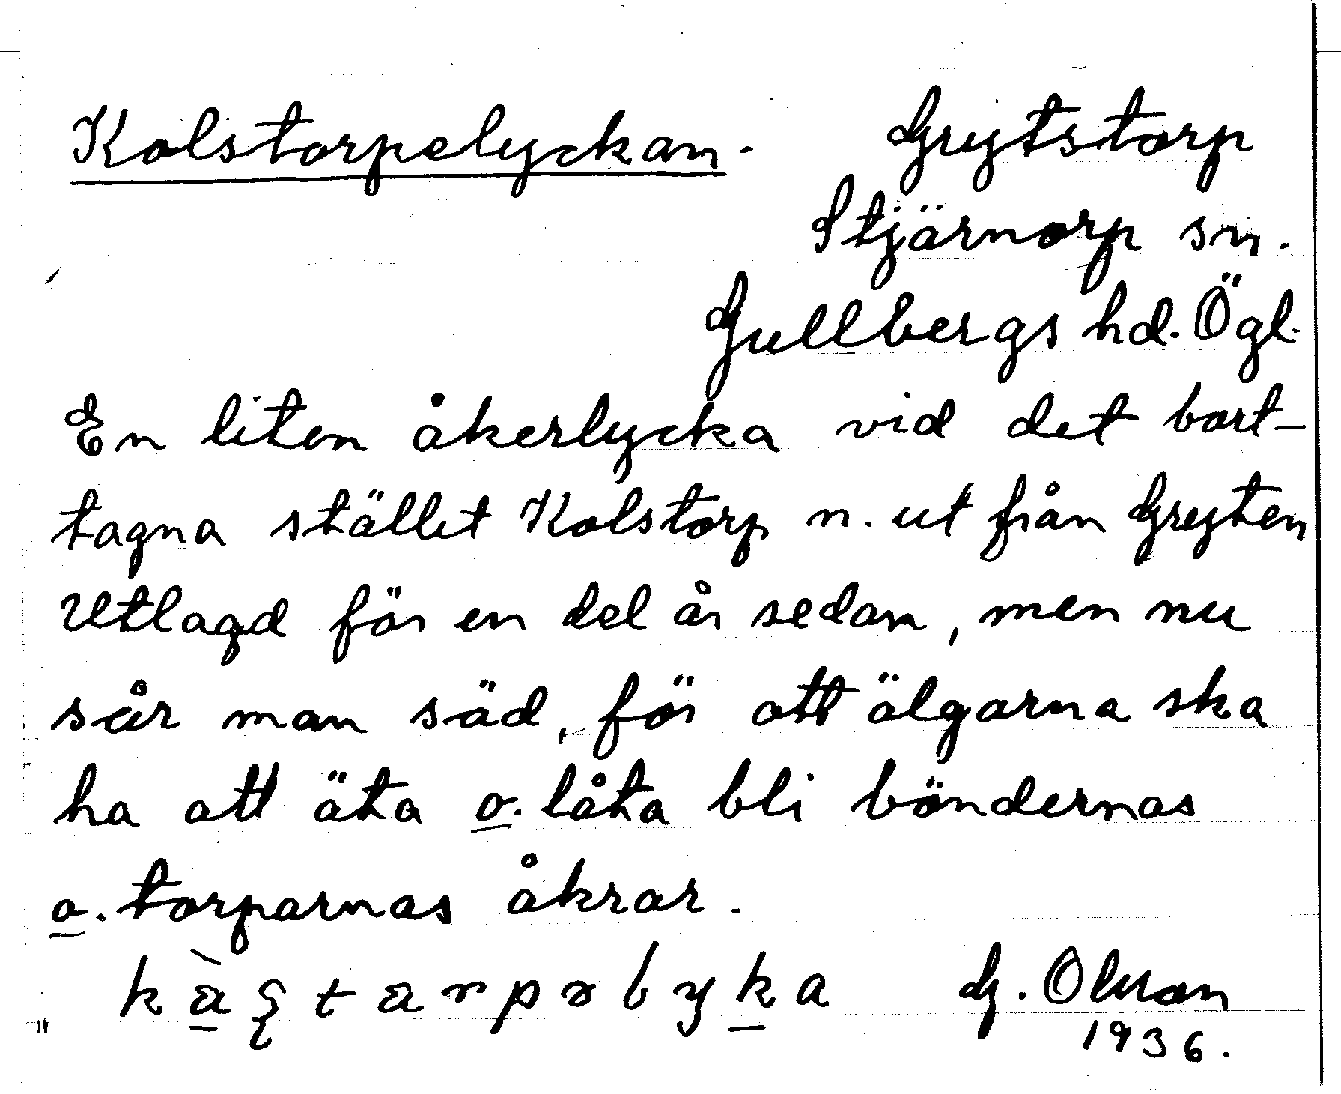 Kolstorpelyckan. Grytstorp
Stjärnorp sn.
Gullbergs hd. Ögl.
En liten åkerlycka vid det bort-
tagna stället Kolstorp n. ut från Gryten
Utlagd för en del år sedan, men nu
sår man säd, för att älgarna ska
ha att äta o. låta bli böndernas
o. torparnas åkrar.
G. Olsson
1936.